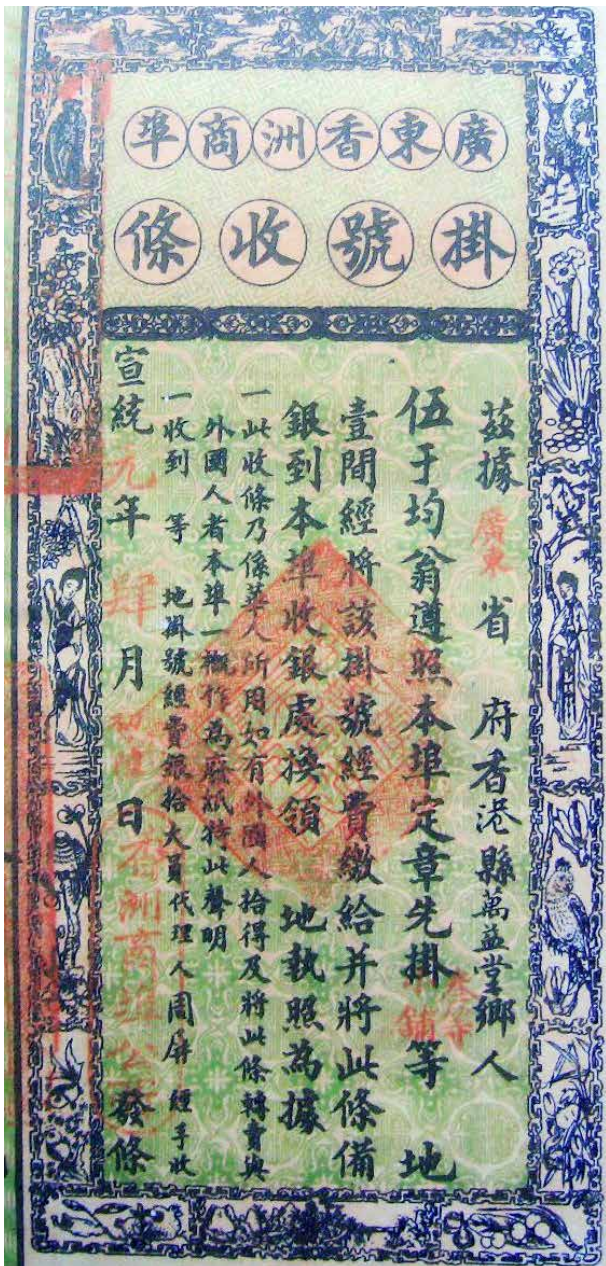 廣東香洲商埠
掛號收條
茲據廣東省　府香港縣萬益堂鄉人
伍于均翁遵照本埠定章先掛叁等舖等　地
壹間經將該掛號經費繳給并將此條備
銀到本埠收銀處換領　地執照為據
一此收條乃係華人所用如有外國人拾得及將此條轉賣與
外國人者本埠一概作為廢紙特此聲明
一收到　等　地掛號經費銀拾大員代理人周屏　經手收
宣統元年肆月　日香洲商埠公　發條